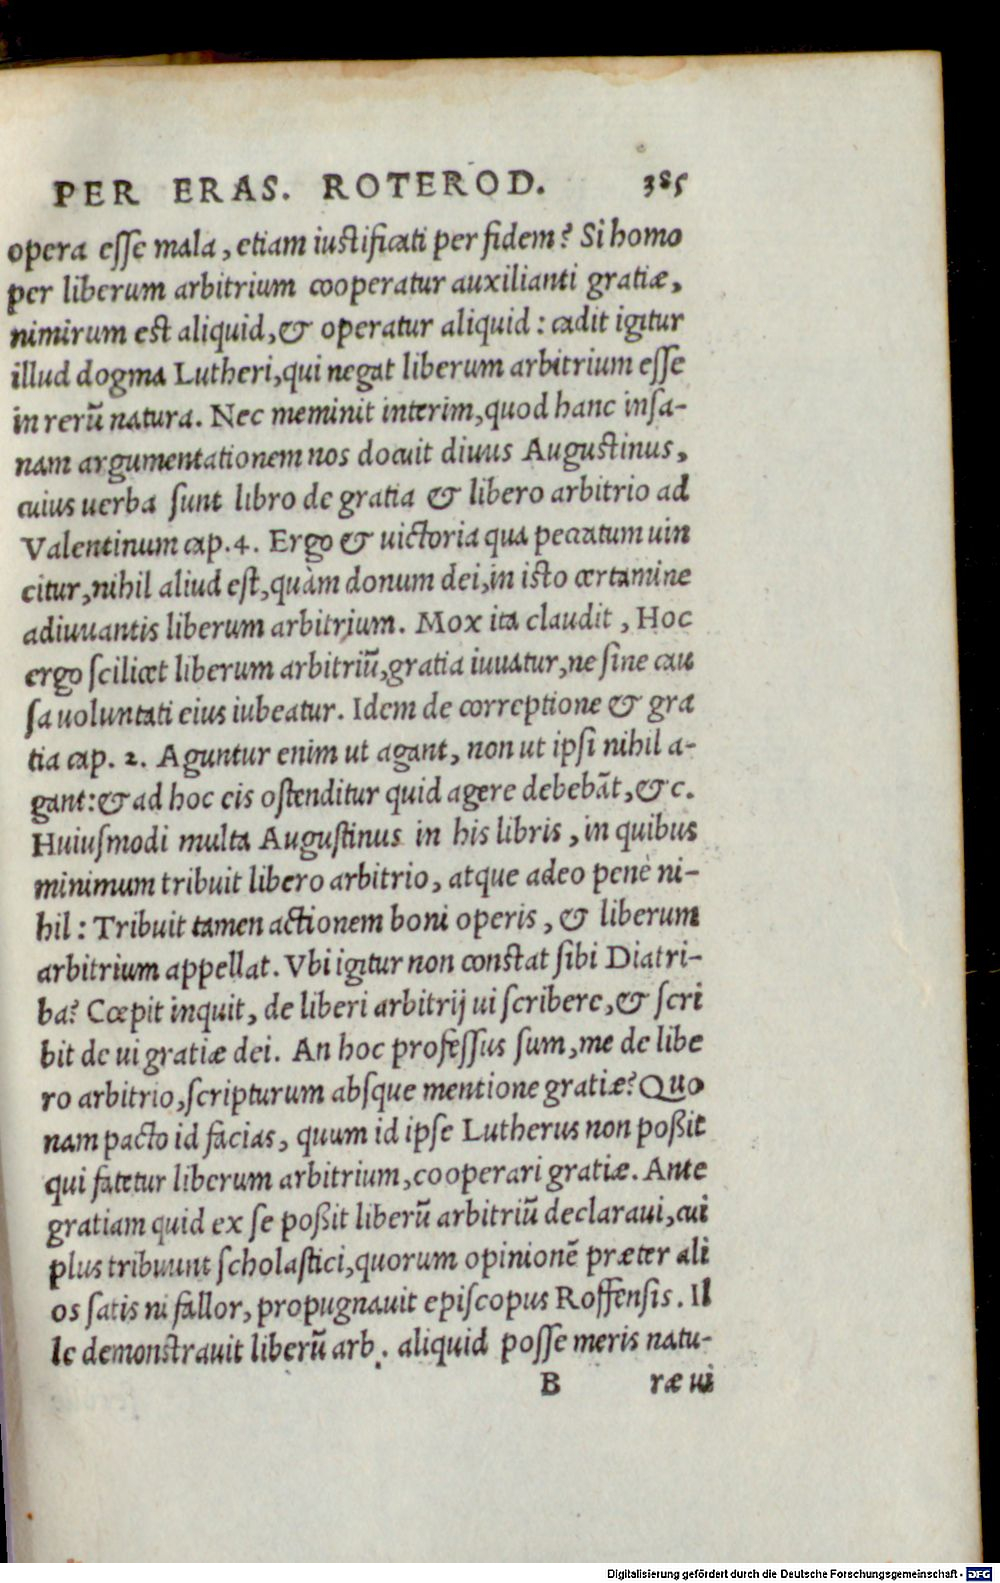 PER ERAS. ROTEROD. 385
opera esse mala, etiam iustificati per fidem? Si homo
per liberum arbitrium cooperatur auxilianti gratiæ,
nimirum est aliquid, & operatur aliquid: cadit igitur
illud dogma Lutheri, qui negat liberum arbitrium esse
in rerũ natura. Nec meminit interim, quod hanc insa-
nam argumentationem nos docuit diuus Augustinus,
cuius uerba sunt libro de gratia & libero arbitrio ad
Valentinum cap. 4. Ergo & uictoria qua peccatum uin
citur, nihil aliud est, quàm donum dei, in isto certamine
adiuuantis liberum arbitrium. Mox ita claudit, Hoc
ergo scilicet liberum arbitriũ, gratia iuuatur, ne sine cau
sa uoluntati eius iubeatur. Idem de correptione & gra
tia cap. 2. Aguntur enim ut agant, non ut ipsi nihil a-
gant: & ad hoc eis ostenditur quid agere debebãt, &c.
Huiusmodi multa Augustinus in his libris, in quibus
minimum tribuit libero arbitrio, atque adeo penè ni-
hil: Tribuit tamen actionem boni operis, & liberum
arbitrium appellat. Vbi igitur non constat sibi Diatri-
ba? Cœpit inquit, de liberi arbitrij ui scribere, & scri
bit de ui gratiæ dei. An hoc professus sum, me de libe
ro arbitrio, scripturum absque mentione gratiæ? Quo
nam pacto id facias, quum id ipse Lutherus non poßit
qui fatetur liberum arbitrium, cooperari gratiæ. Ante
gratiam quid ex se poßit liberũ arbitriũ declaraui, cui
plus tribuunt scholastici, quorum opinionẽ præter ali
os satis ni fallor, propugnauit episcopus Roffensis. Il
le demonstrauit liberũ arb. aliquid posse meris natu-
B ræ ui
Digitalisierung gefördert durch die Deutsche Forschungsgemeinschaft - DFG